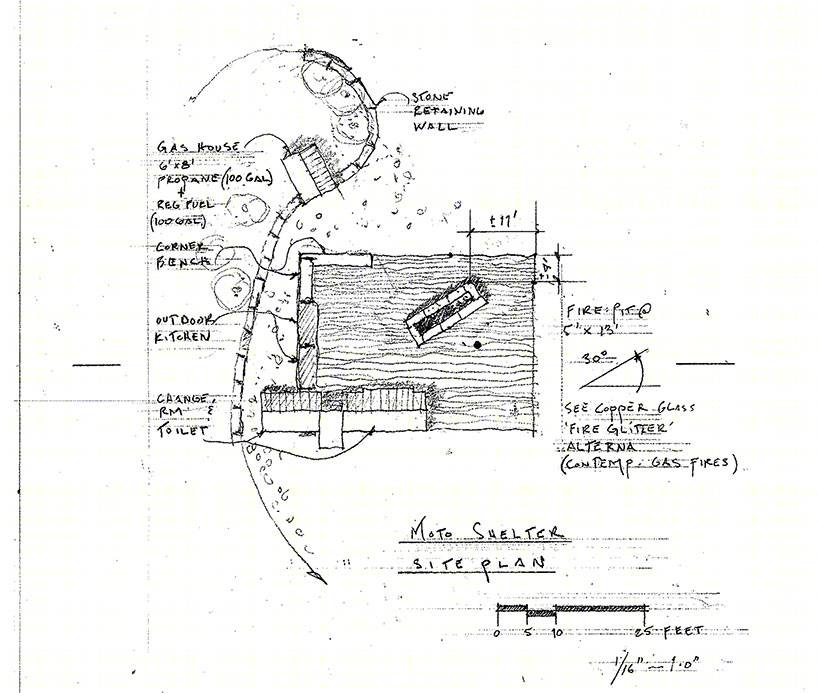 STONE
RETAINING
WALL
GAS HOUSE
6'x8'
PROPANE (100 GAL)
+
REG FUEL
(100 GAL)
CORNER
BENCH
±11'
±4'
OUTDOOR
KITCHEN
FIRE PIT @
5' x 13'
30°
CHANGE
RM &
TOILET
SEE COPPER GLASS
'FIRE GLITTER'
ALTERNA
(CONTEMP. GAS FIRES)
MOTO SHELTER
SITE PLAN
0 5 10 25 FEET
1/16" — 1'.0"